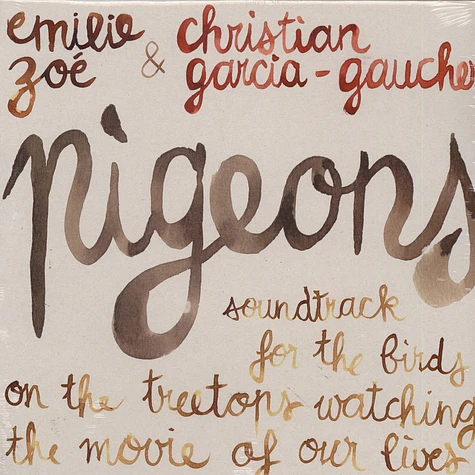 emilie
zoé & christian
garcia-gauche
pigeons
soundtrack
for the birds
on the treetops watching
the movie of our lives